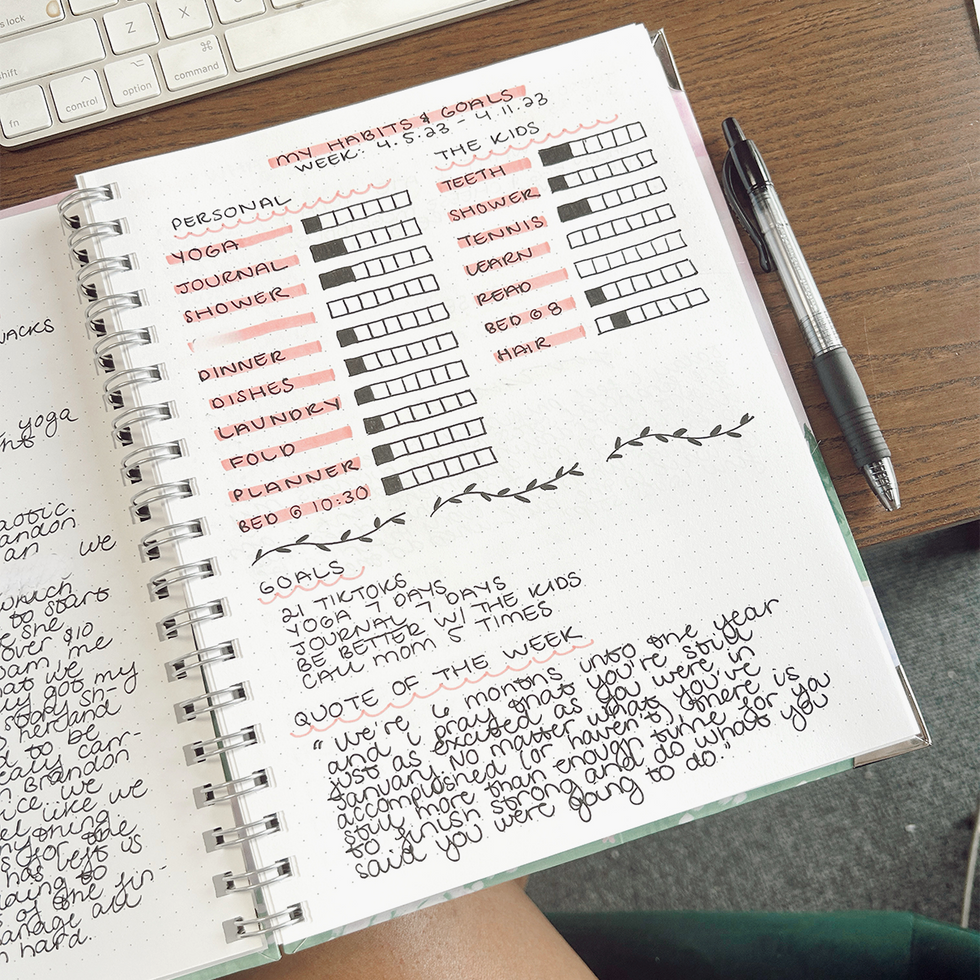 s lock
Z
X
⌘
shift
^
control
⌥
option
command
fn
MY HABITS & GOALS
WEEK: 4.5.23 - 4.11.23
PERSONAL
YOGA
JOURNAL
SHOWER
DINNER
DISHES
LAUNDRY
FOLD
PLANNER
BED @ 10:30
THE KIDS
TEETH
SHOWER
TENNIS
LEARN
READ
BED @ 8
HAIR
GOALS
21 TIKTOKS
YOGA 7 DAYS
JOURNAL 7 DAYS
BE BETTER W/ THE KIDS
CALL MOM 5 TIMES
QUOTE OF THE WEEK
"We're 6 months into the year
and i pray that you're still
just as excited as you were in
January. No matter what you've
accomplished (or haven't) there is
still more than enough time for you
to finish strong and do what you
said you were going to do."
NACKS
yoga
aotic.
andon
an we
which
to start
e she
over $10
pam me
at we
y got my
story sh-
herand
d to be
eally carr-
n Brandon
ice we
el like we
nything
s for the
has left is
ding to
s of the fin-
anage all
n hard.